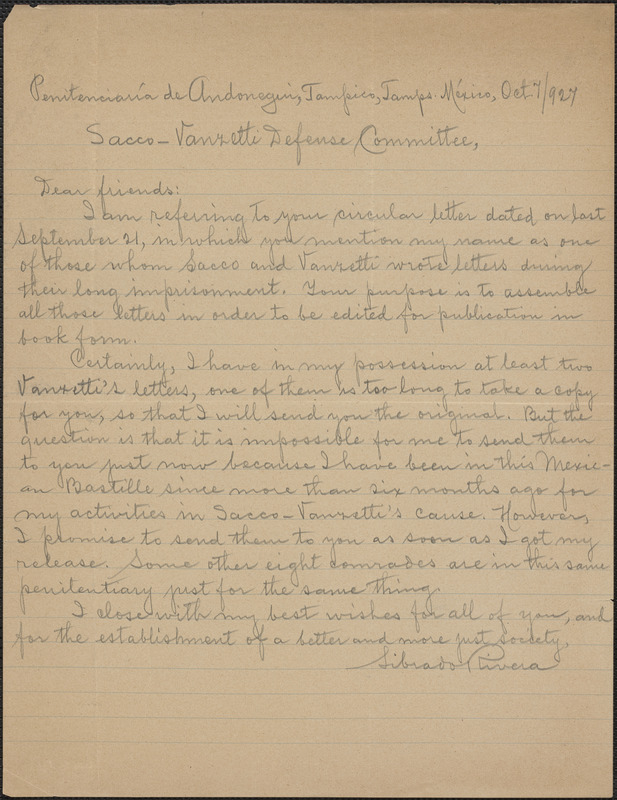 Penitenciaría de Andonegui, Tampico, Tamps. México, Oct. 7/927
Sacco-Vanzetti Defense Committee,
Dear friends:
I am referring to your circular letter dated on last
September 21, in which you mention my name as one
of those whom Sacco and Vanzetti wrote letters during
their long imprisonment. Your purpose is to assemble
all those letters in order to be edited for publication in
book form.
Certainly, I have in my possession at least two
Vanzetti's letters, one of them is too long to take a copy
for you, so that I will send you the original. But the
question is that it is impossible for me to send them
to you just now because I have been in this Mexic-
an Bastille since more than six months ago for
my activities in Sacco-Vanzetti's cause. However,
I promise to send them to you as soon as I got my
release. Some other eight comrades are in this same
penitentiary just for the same thing
I close with my best wishes for all of you, and
for the establishment of a better and more just society.
Librado Rivera